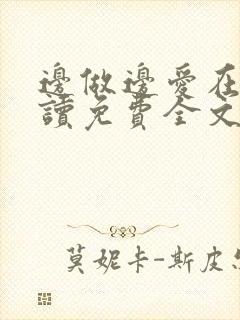 邊做邊愛在
讀免費全文
莫妮卡-斯皮